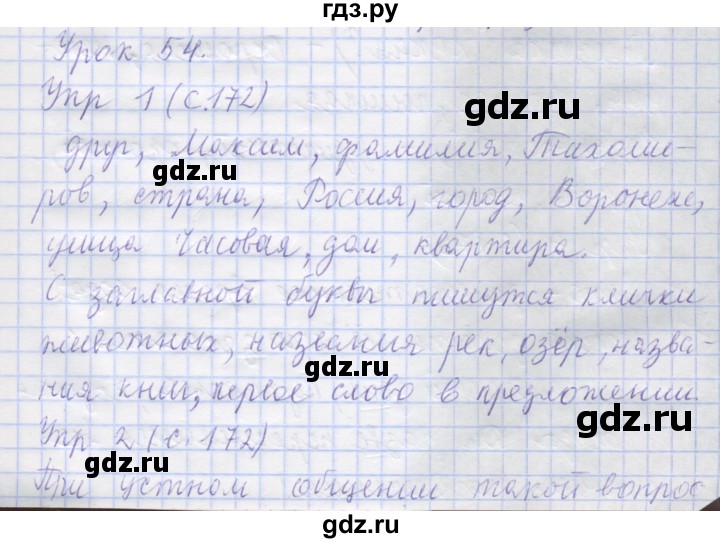 гдз.ру
Урок 54.
Упр 1 (с.172)
gdz.ru
друг, Максим, фамилия, Тихоми-
gdz.ru
ров, страна, Россия, город, Воронеж,
gdz.ru
улица Часовая, дом, квартира.
С заглавной буквы пишутся клички
животных, названия рек, озёр, назва-
gdz.ru
ния книг, первое слово в предложении.
gdz.ru
Упр 2 (с. 172)
gdz.ru
При устном общении такой вопрос
gdz.ru